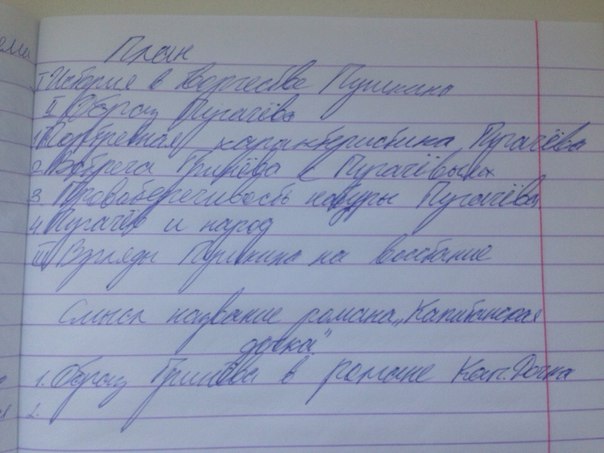 ема
План
I История в творчестве Пушкина
II Образ Пугачёва
1 Портретная характеристика Пугачёва
2. Встреча Гринёва с Пугачёвым
3 Противоречивость натуры Пугачёва
4. Пугачёв и народ
III Взгляды Пушкина на восстание
Смысл название романа „Капитанская
дочка"
1. Образ Гринёва в романе Кап. Дочка
2.